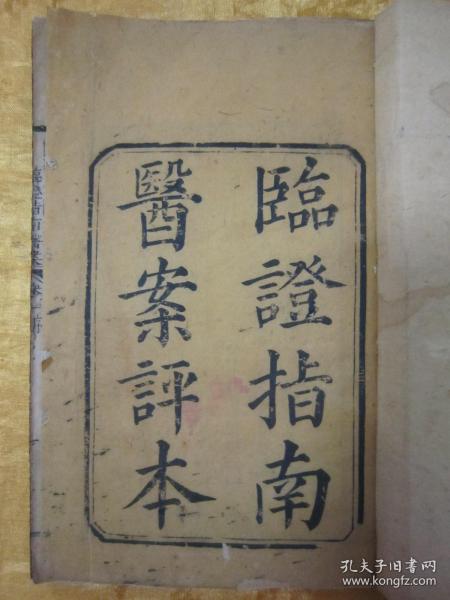 臨證指南
醫案評本
臨證指南醫案
孔夫子旧书网
www.kongfz.com